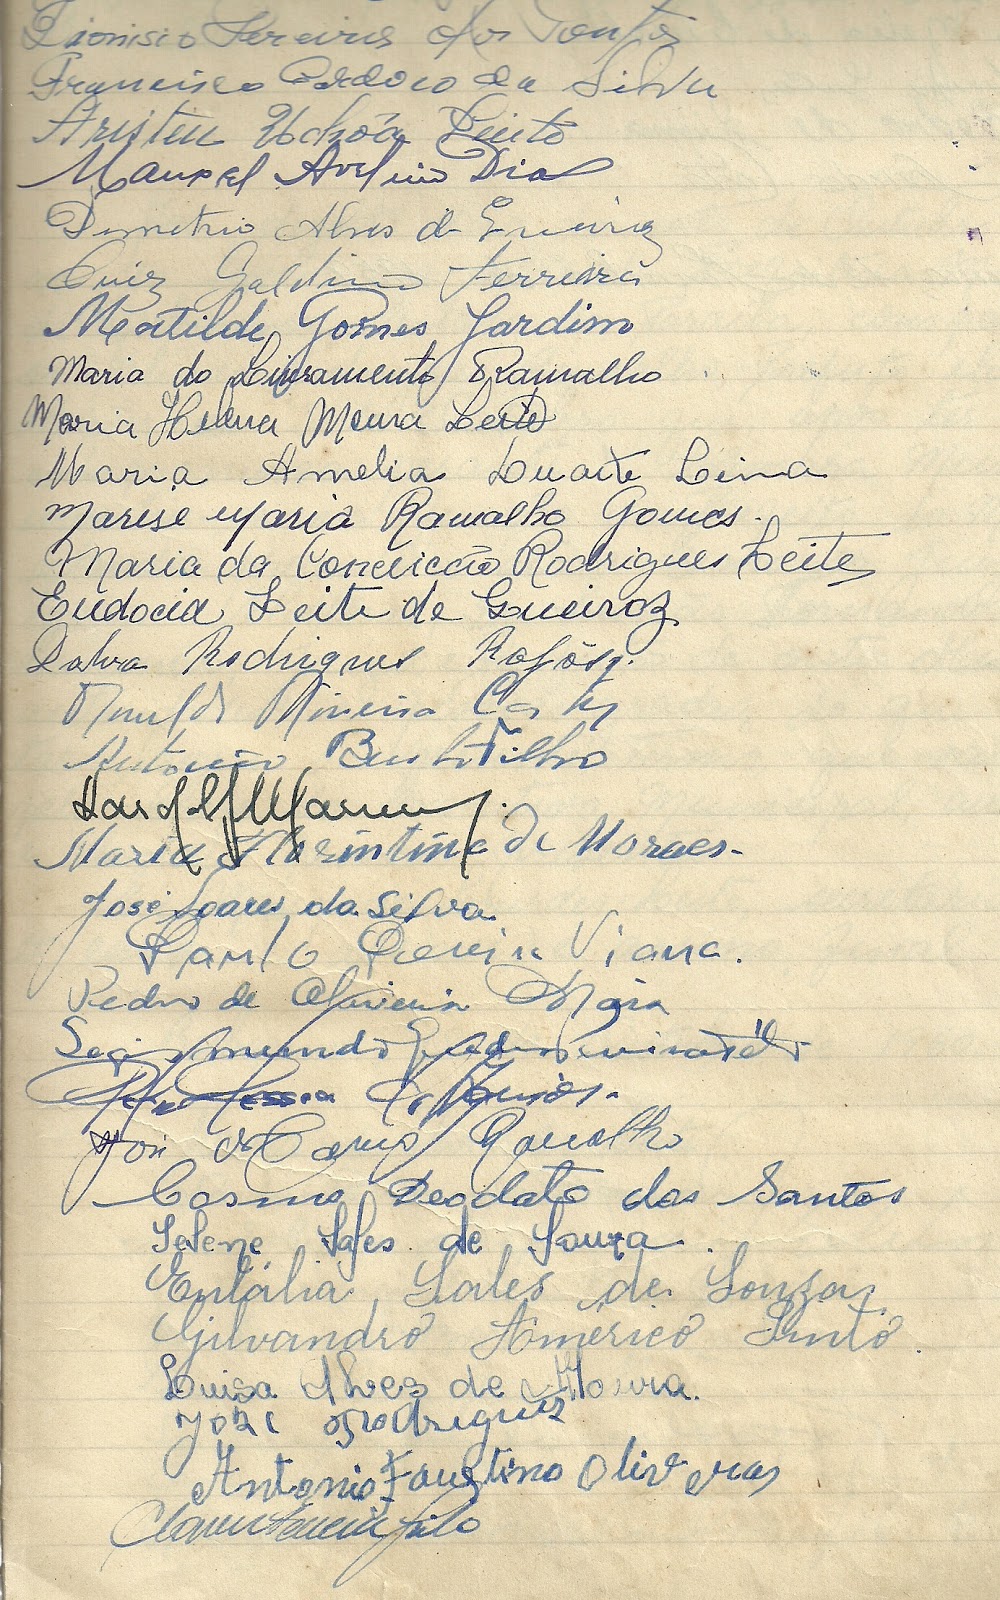 Dionisio Pereira dos Santos
Francisco Cardoso da Silva
Aristeu Uchôa Pinto
Manoel Avelino Dias
Demetrio Alves de Queiroz
Luiz Galdino Ferreira
Matilde Gomes Jardim
Maria do Livramento Ramalho
Maria Helena Moura Leite
Maria Amelia Duarte Lima
Marise Maria Ramalho Gomes.
Maria da Conceicão Rodrigues Leite
Eudocia Leite de Queiroz
Dalva Rodrigues
Antonio Filho
Maria Florintina de Moraes
José Soares da Silva
Paulo Pereira Viana.
Pedro de Oliveira
Segismundo
José de Ramalho
Cosmo Deodato dos Santos
Selene Sales de Souza.
Eulália Sales de Souza.
Gilvandro Américo Pinto.
Luisa Alves de Moura.
Rodrigues
Antonio Faustino Oliveras
Filho